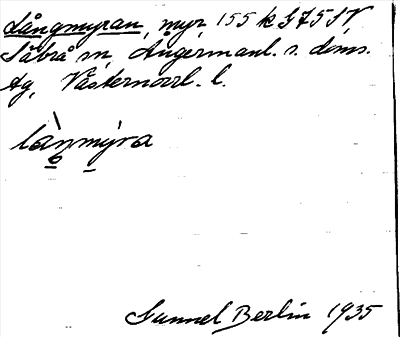 Långmyran, myr, 155 k S 75 SV
Säbrå sn, Ångermanl. s. doms.
tg, Västernorrl. l.
lànmýra
Gunnel Berlin 1935